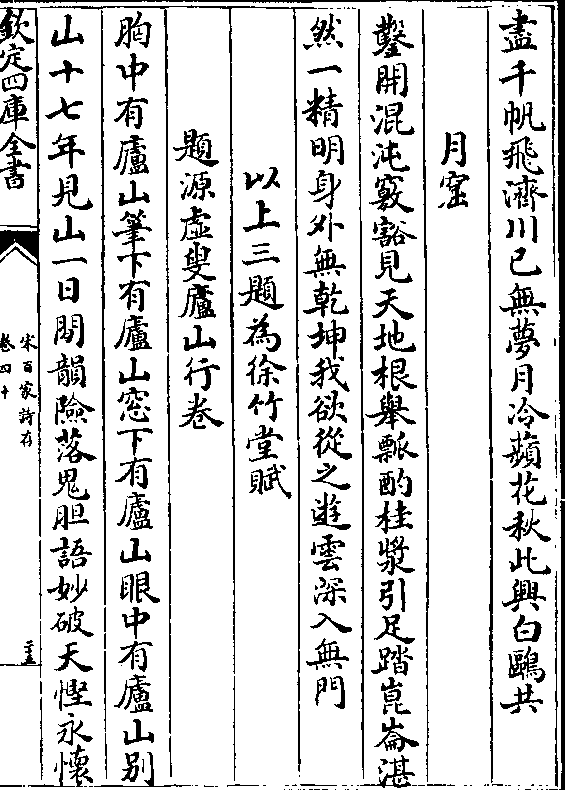 盡千帆飛濟川已無夢月冷蘋花秋此興白鷗共
月窟
鑿開混沌竅豁見天地根舉瓢酌桂漿引足踏崑崙湛
然一精明身外無乾坤我欲從之遊雲深入無門
以上三題為徐竹堂賦
題源虛叟廬山行卷
胸中有廬山筆下有廬山窓下有廬山眼中有廬山别
山十七年見山一日閒韻險落鬼胆語妙破天慳永懷
欽定四庫全書
宋百家詩存
卷四十